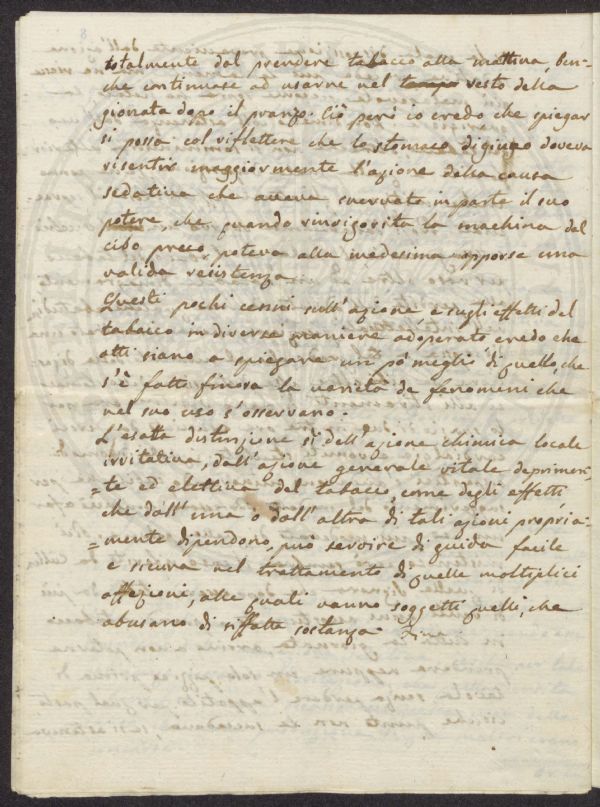 8
totalmente dal prendere tabacco alla mattina, ben=
che continuasse ad usarne nel tempo resto della
gionata dopo il pranzo. Ciò però io credo che spiegar
si possa col riflettere che lo stomaco digiuno doveva
risentir maggiormente l'azione della causa
sedativa che aveva snervato in parte il suo
potere, che quando rinvigorita la machina dal
cibo preso, poteva alla medesima opporse una
valida resistenza.
Questi pochi cenni sull'azione e sugli effetti del
tabacco in diverse maniere adoperato credo che
atti siano a spiegare un pò meglio di quello, che
s'è fatto finora la varietà de fenomeni che
nel suo uso s'osservano.
L'esatta distinzione sì dell'azione chimica locale
irritativa, dall'azione generale vitale deprimen=
=te ed elettiva del tabacco, come degli effetti
che dall'una o dall'altra di tali azioni propria=
=mente dipendono, può servire di guida facile
e sicura nel trattamento di quelle moltiplici
affezioni, alle quali vanno soggetti quelli, che
abusano di siffatta sostanza. Fine